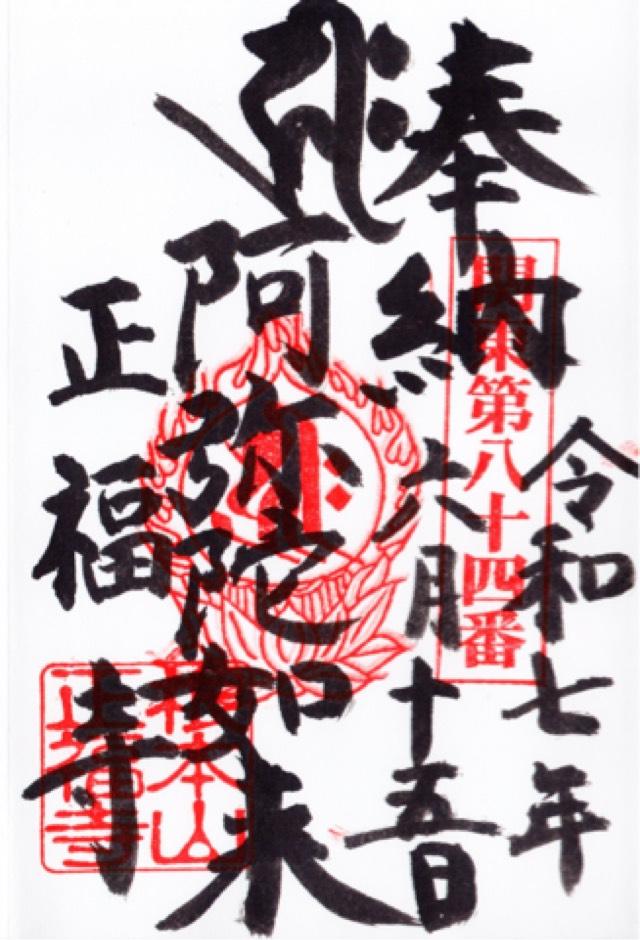 令和七年
関東第八十四番
奉納
六月十五日
ह्रीः
阿弥陀如来
正福寺
本山
正福寺